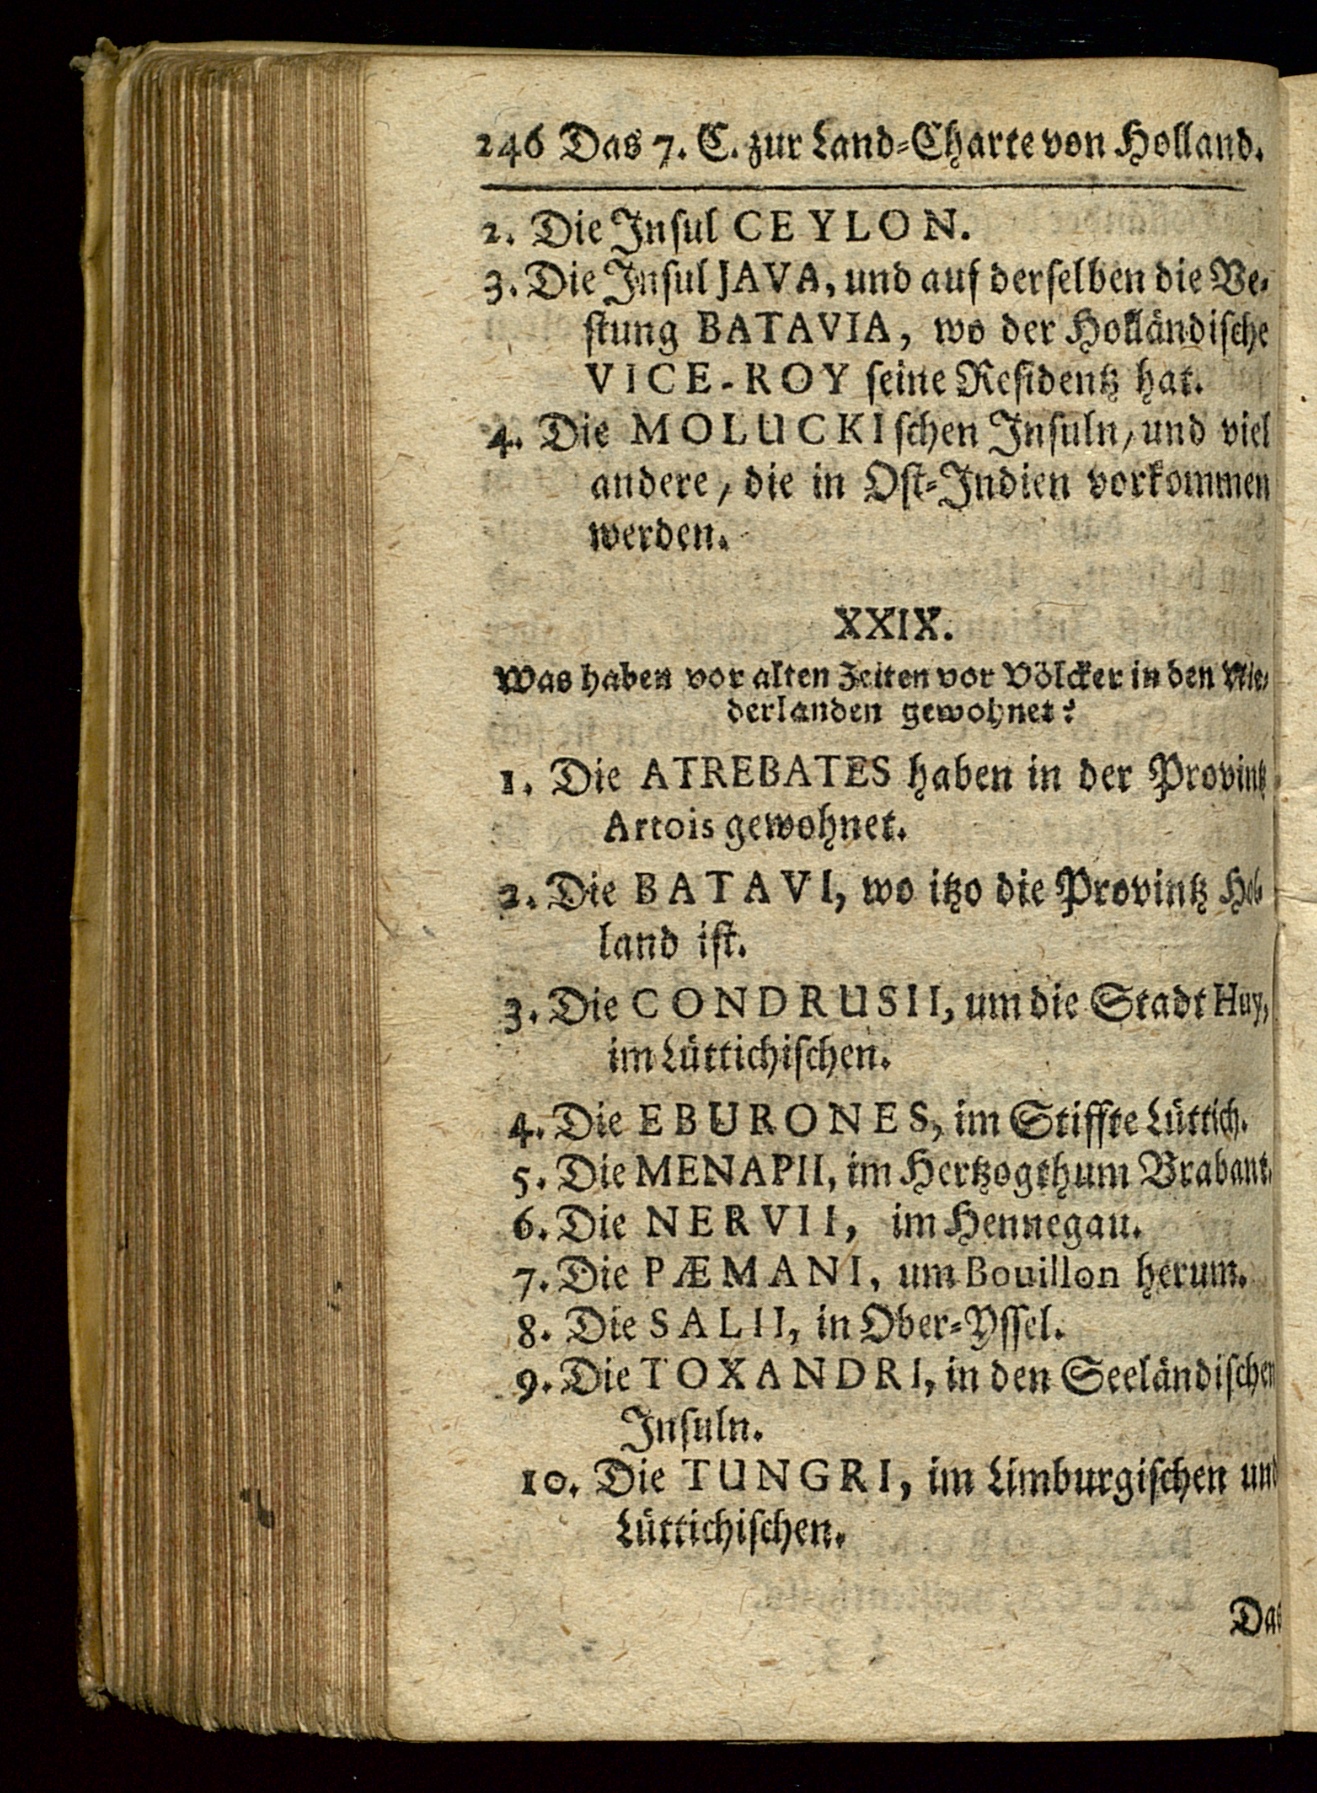 246 Das 7. C. zur Land-Charte von Holland.
2. Die Inſul CEYLON.
3. Die Inſul JAVA, und auf derſelben die Ve-
ſtung BATAVIA, wo der Holländiſche
VICE-ROY ſeine Reſidentz hat.
4. Die MOLUCKIſchen Inſuln, und viel
andere, die in Oſt-Indien vorkommen
werden.
XXIX.
Was haben vor alten Zeiten vor Völcker in den Nie-
derlanden gewohnet?
1. Die ATREBATES haben in der Provintz
Artois gewohnet.
2. Die BATAVI, wo itzo die Provintz Hol-
land iſt.
3. Die CONDRUSII, um die Stadt Huy,
im Lüttichiſchen.
4. Die EBURONES, im Stiffte Lüttich.
5. Die MENAPII, im Hertzogthum Brabant.
6. Die NERVII, im Hennegau.
7. Die PÆMANI, um Bouillon herum.
8. Die SALII, in Ober-Yſſel.
9. Die TOXANDRI, in den Seeländiſchen
Inſuln.
10. Die TUNGRI, im Limburgiſchen und
Lüttichiſchen.
Das